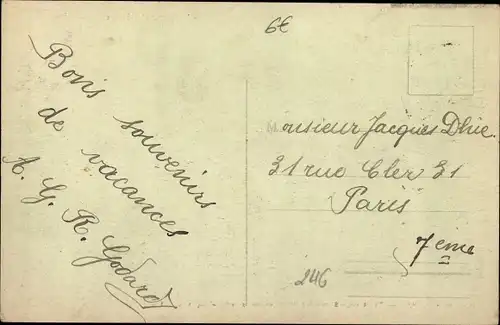 6€
Bons souvenirs
de vacances
A. G. R. Godard
Monsieur Jacques Dhie.
31 rue Cler 31
Paris
7ème
246